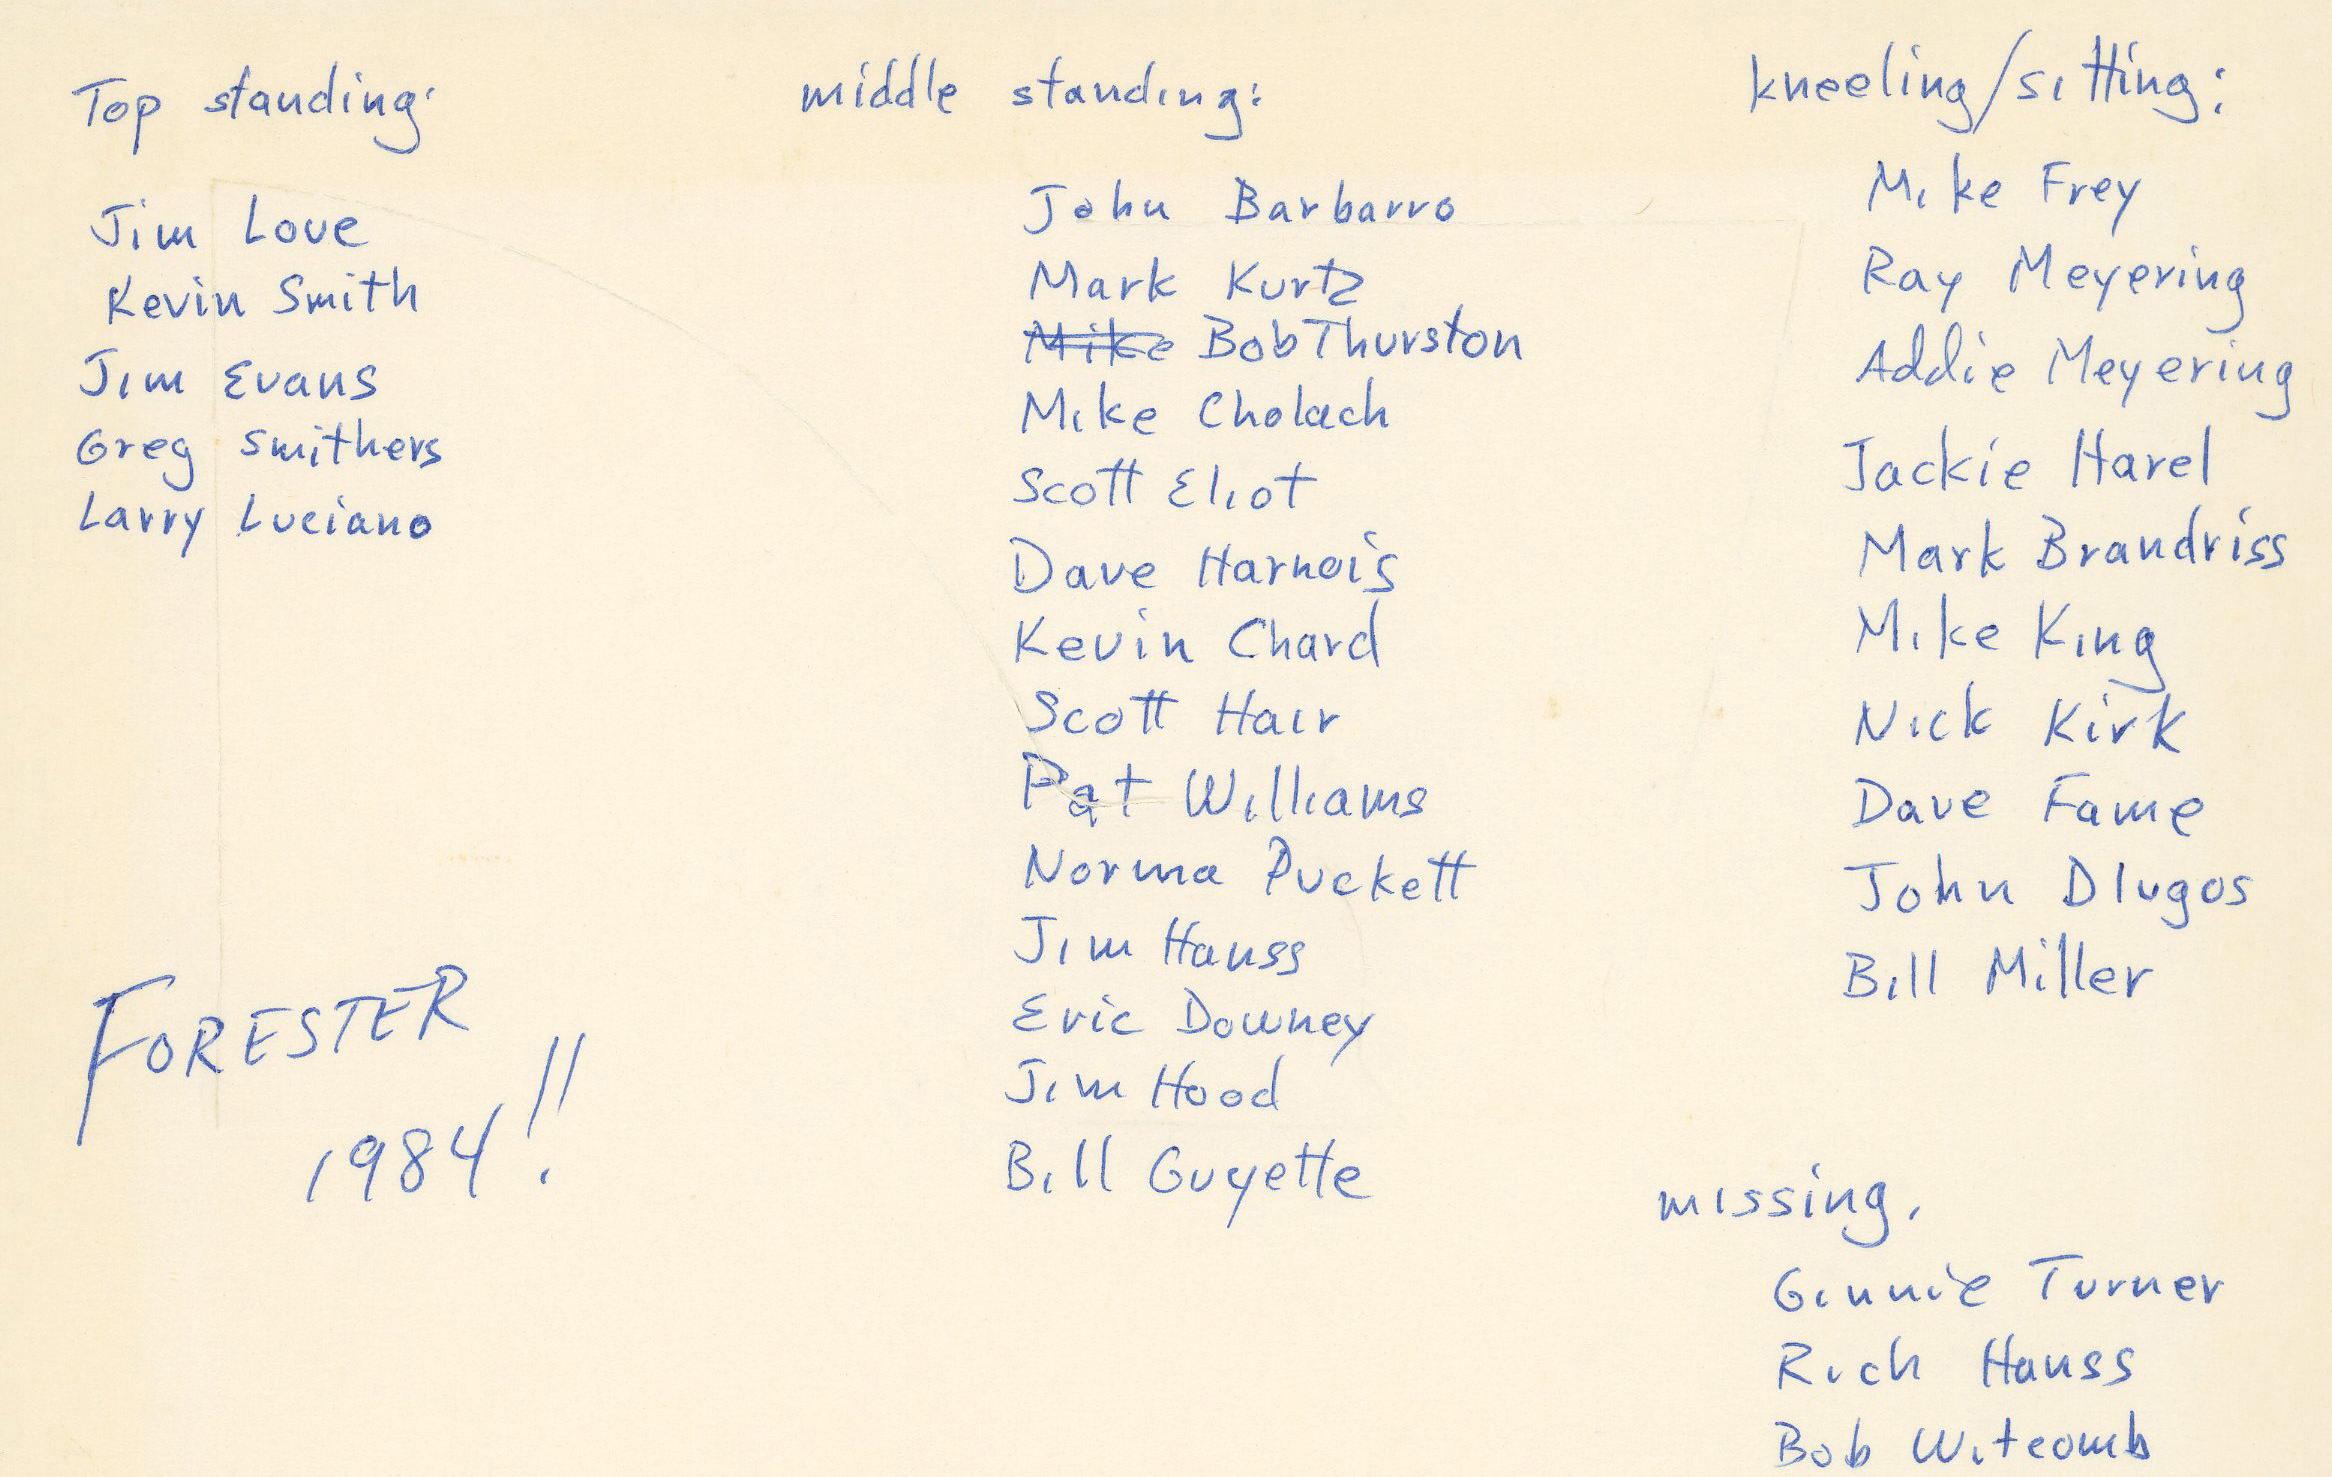 Top standing:
Jim Love
Kevin Smith
Jim Evans
Greg Smithers
Larry Luciano
FORESTER
1984!!
middle standing:
John Barbarro
Mark Kurtz
Mike Bob Thurston
Mike Cholach
Scott Eliot
Dave Harnois
Kevin Chard
Scott Hair
Pat Williams
Norma Puckett
Jim Hauss
Eric Downey
Jim Hood
Bill Guyette
kneeling/sitting:
Mike Frey
Ray Meyering
Addie Meyering
Jackie Harel
Mark Brandriss
Mike King
Nick Kirk
Dave Fame
John Dlugos
Bill Miller
missing.
Ginnie Turner
Rich Hauss
Bob Witcomb